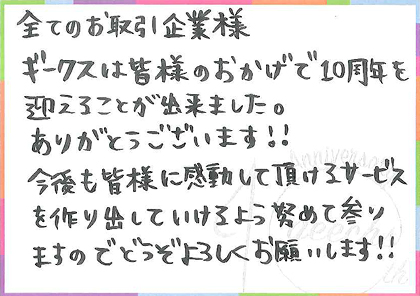 全てのお取引企業様
ギークスは皆様のおかげで10周年を
迎えることが出来ました。
ありがとうございます!!
今後も皆様に感動して頂けるサービス
を作り出していけるよう努めて参り
ますのでどうぞよろしくお願いします!!
Anniversary
10th
geechs